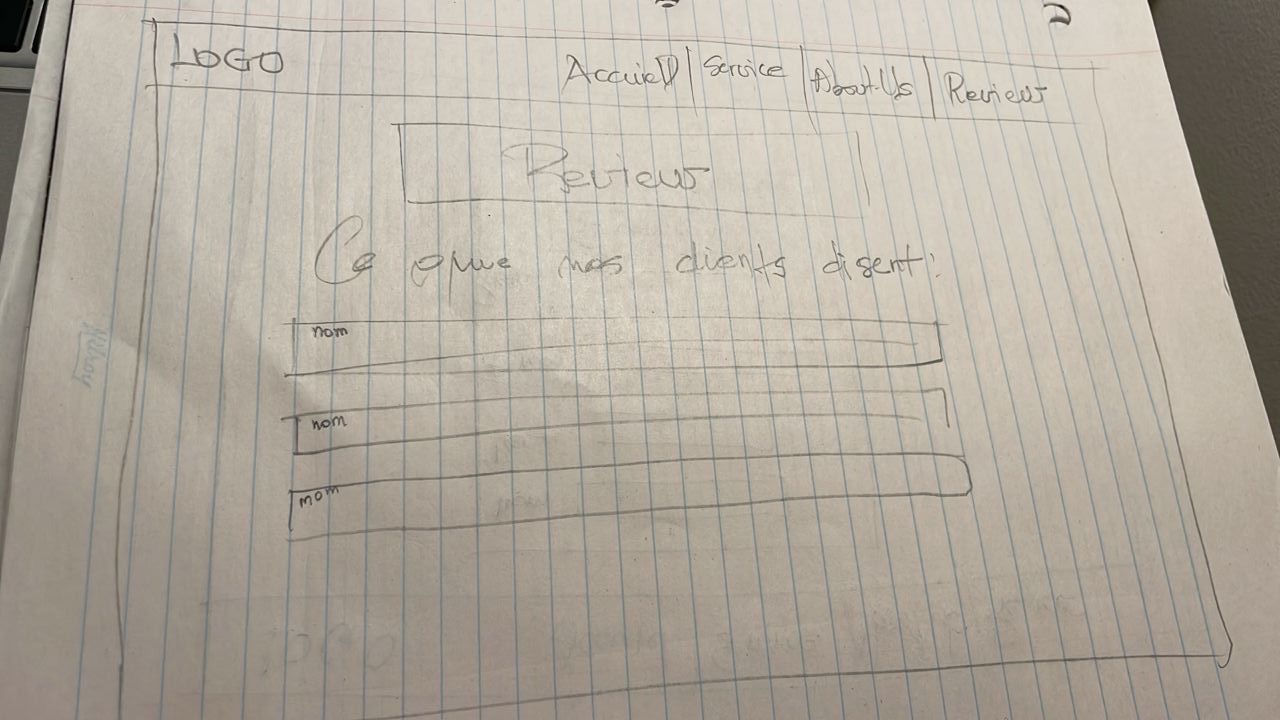 LOGO
Accuiell | Service | About Us | Review
Review
Ce que nos clients disent:
nom
nom
nom